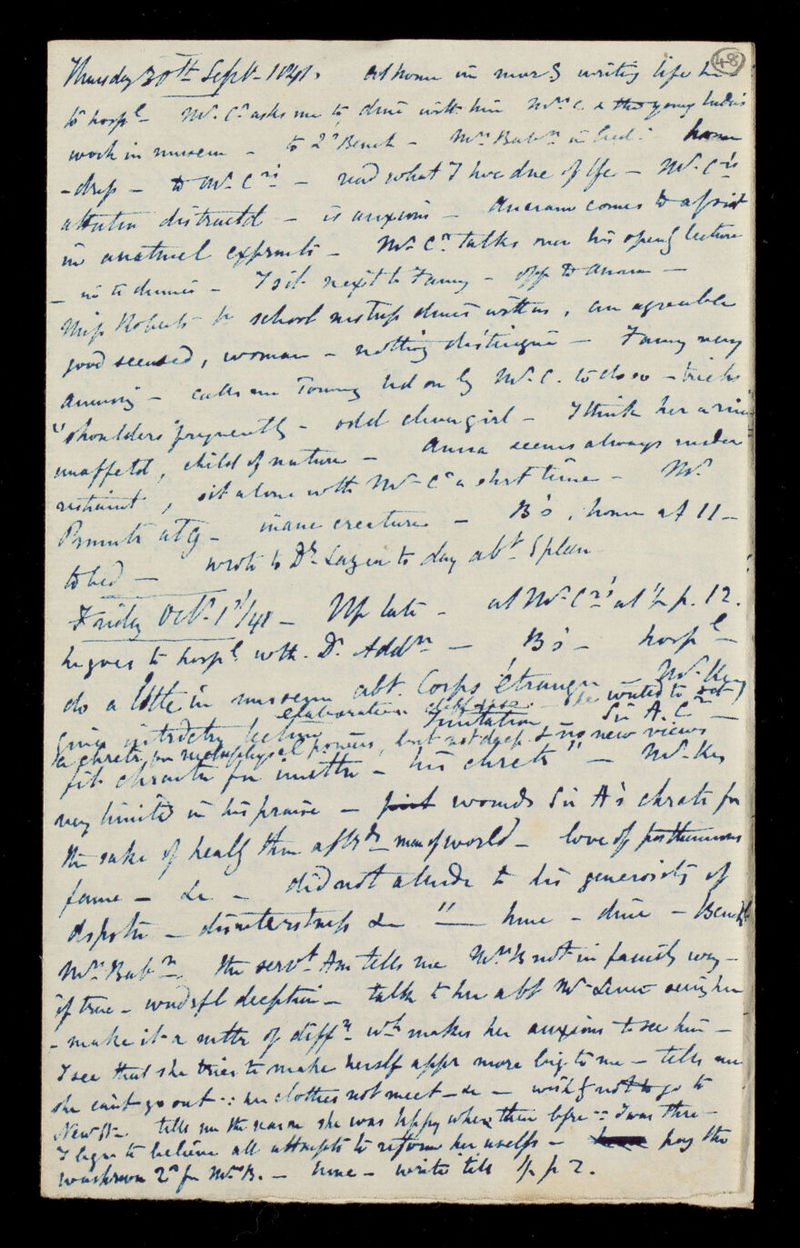 48
Thursday 30th Sept. 1841. At home in morng writing life
to hospl - Mr. Cr asks me to dine with him Mrs C. & the young ladies
work in museum - to 2d Bench - Mrs Babn in bed - home
- dress - to Mr. Crs - read what I have done of life - Mr. Crs
attention distractd - is anxious - comes to assist
in anatmcl exprmts - Mr. Cr talks over his openg lecture
- in to dinner - I sit next to Fanny - opp to Anna -
Miss Roberts school mistrss dines with us, an agreeable
good sensed, woman - nothing distingué - Fanny very
amusing - calls me Tommy led on by Mr. C. to do so - tricks
"shoulders" frequently - odd clever girl - I think her a nice
unaffectd, child of nature - Anna seems always under
restraint, sit alone with Mr. Cr a short time - Mr.
at 9 - inane creature - B's, home at 11 -
to bed - wrote to Dr. to day abt Spleen
Friday Octr. 1st/41 - Up late - at Mr. Crs at ½ p. 12.
he goes to hospl with Dr. Addn - B's - hospl -
do a little in museum abt. Corps étranger - Mr. Key
giving introdctry lecture elaboration Imitation Sir A. Cr -
a chrctr for metaphysl powers, but not deep & no new views
fit chractr for - his chrctr" - Mr. Key
very limited in his praise - wounds Sir A's chractr for
the sake of man of world - love of posthumous
fame - &c - did not allude to his generosity of
dispstn - disinterstdnss &c "- home - dine - Bench
Mrs. Babn. the servt Ann tells me Mrs B not in family way -
if true - wondrfl deception - talk to her abt Mr seeing her
- make it a mttr of diffy wh makes her anxious to see him -
I see that she tries to make herself appr more big to me - tells me
she can't go out ∵ her clothes not meet - &c - to go to
New St - tells me the reason she was happy when there bfre ∵ I was there -
I begin to believe all attempts to reform her useless - pay the
washrwn 2s for Mrs. B. - home - write till ½ p 2.